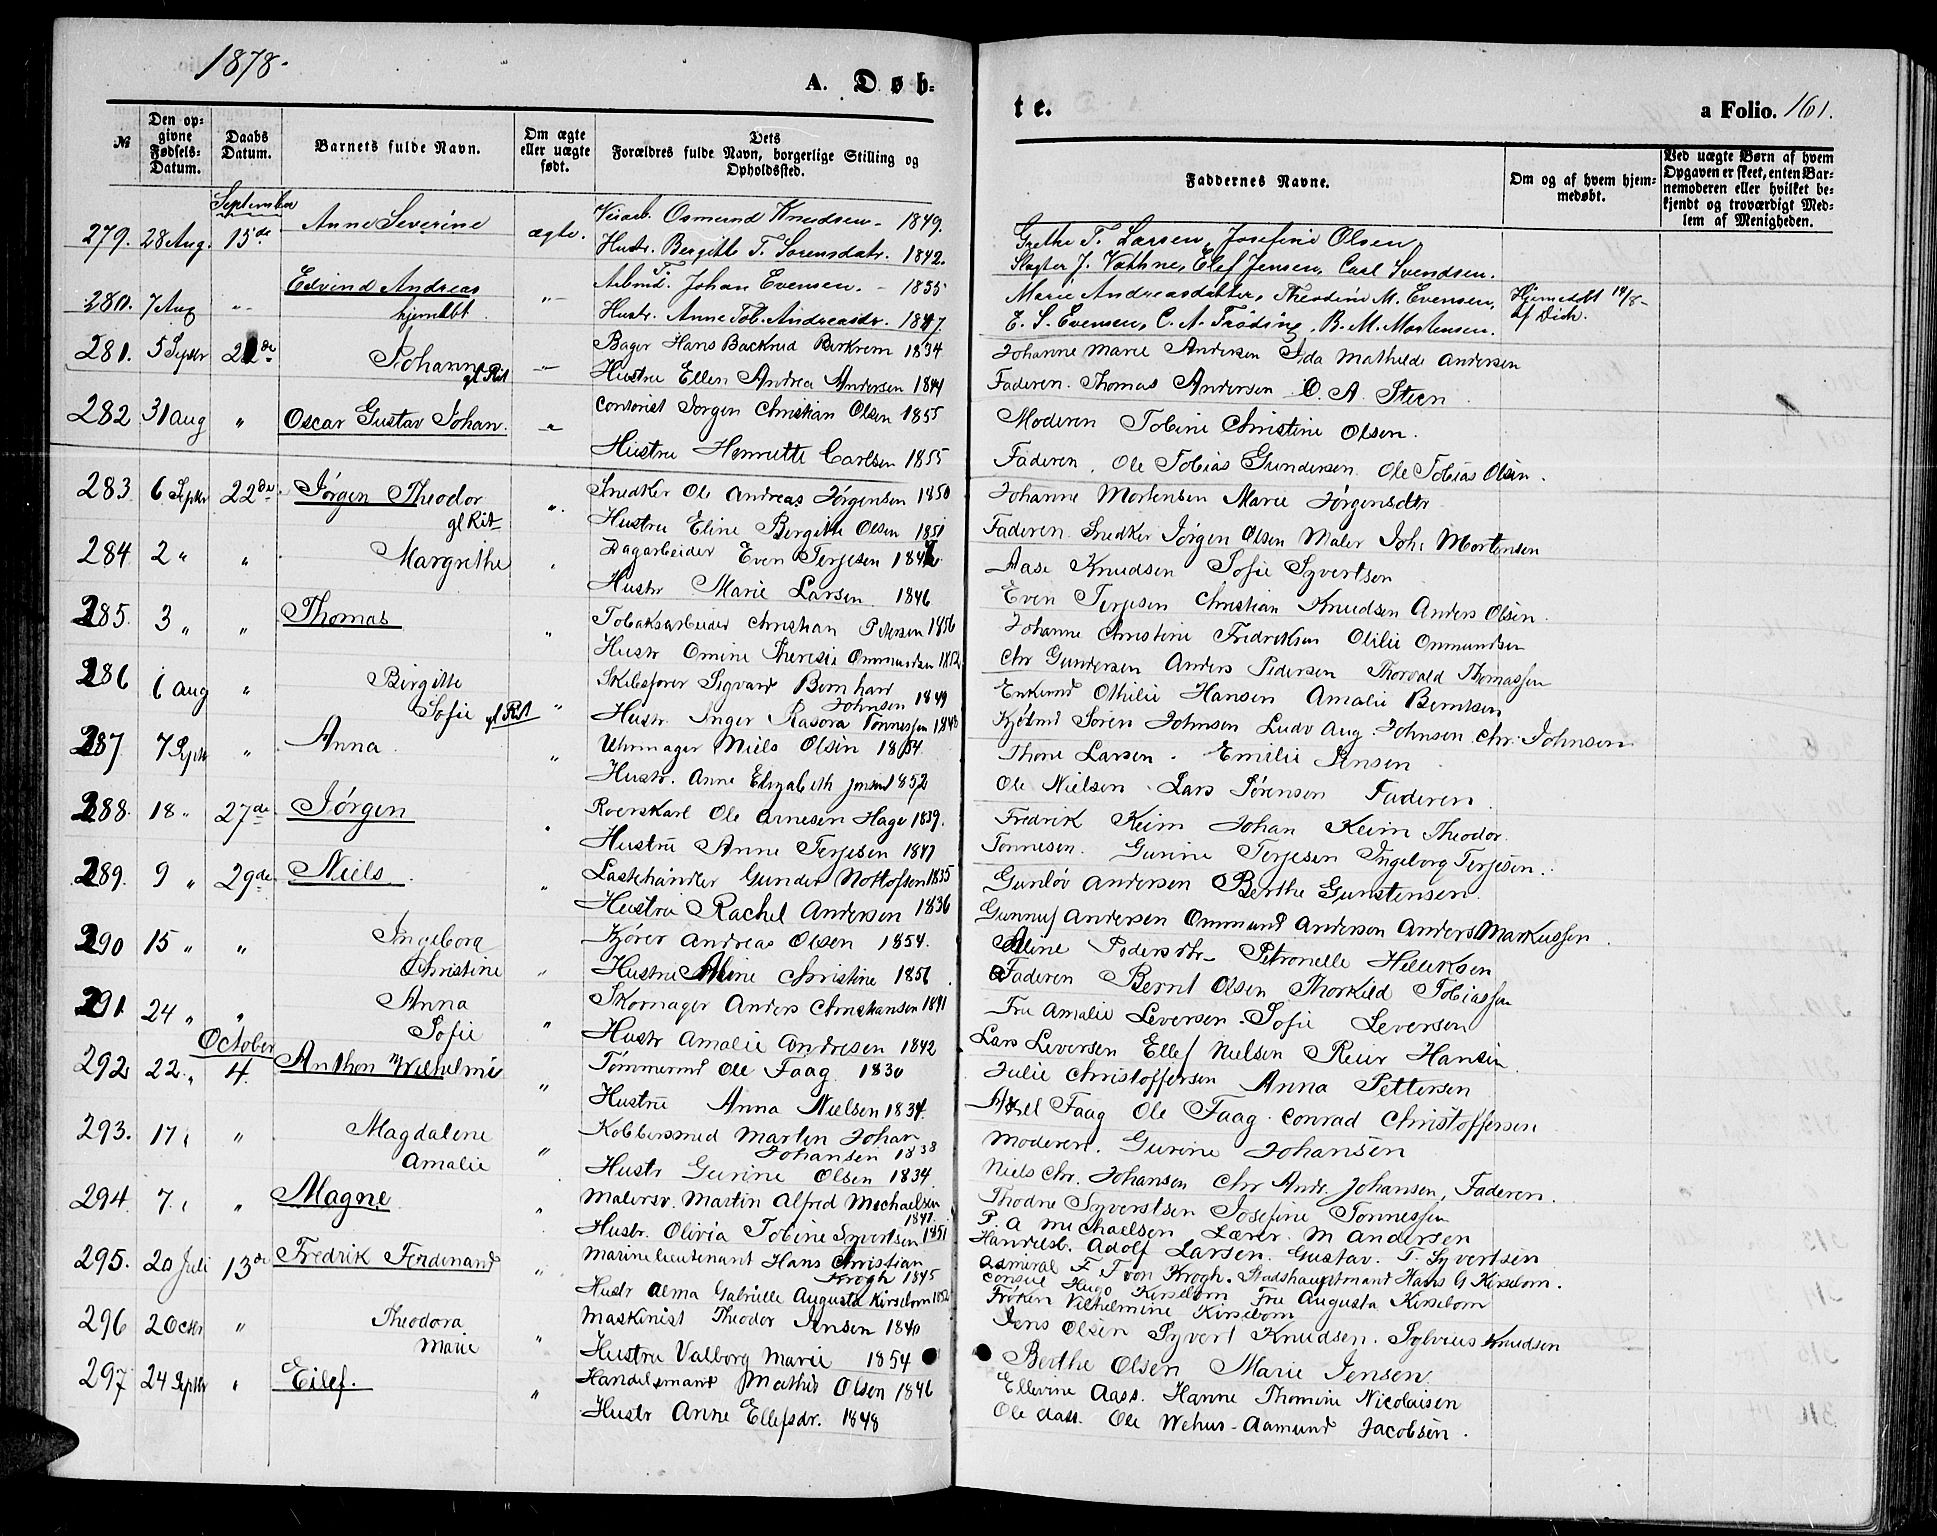 1878.
A. Døb-
te.
a Folio. 161.
№
Den opgivne Fødsels-Datum.
Daabs Datum.
Barnets fulde Navn.
Om ægte eller uægte født.
Dets Forældres fulde Navn, borgerlige Stilling og Opholdssted.
Faddernes Navne.
Om og af hvem hjemmedøbt.
Ved uægte Børn af hvem Opgaven er skeet, enten Barnemoderen eller hvilket bekjendt og troværdigt Medlem af Menigheden.
September
279. 28 Aug. 15de Anne Severine ægte. Osmund Knudsen - 1849. Grethe T. Larsen, Josefine Olsen,
Hustr. Bergitte T. Sorensdatr. 1842. Slagter J. Vathne, Elef Jensen, Carl Svendsen.
280. 7 Aug " Edvind Andreas "- Arbmd. Johan Evensen. - 1855 Marie Andreasdatter, Theodine M. Evensen, Hjemedøbt 14/8-
hjemdbt Hustr. Anne Tob. Andreasdr. 1847. E. S. Evensen, C. A. Trøding, B. M. Mortensen. af Dich.
281. 5 Septr 22de Johanne "- Bager Hans Backrud Birkrem 1834 Johanne Marie Andersen Ida Mathilde Andersen
gl Rit Hustru Ellen Andrea Andersen 1844 Faderen. Thomas Andersen O. A. Steen
282 31 aug " Oscar Gustav Johan. " Contorist Jørgen Christian Olsen 1855 Moderen Tobine Christine Olsen.
Hustru Henriette Carlsen 1855 Faderen. Ole Tobias Gundersen Ole Tobias Olsen.
283 6 Septr 22de Jørgen Theodor ". Snedker Ole Andreas Jørgensen 1850 Johanne Mortensen Marie Jørgensdtr
gl Rit Hustru Eline Bergitte Olsen 1851 Faderen. Snedker Jørgen Olsen Maler Joh. Mortensen
284 2 " " Margrethe " Dagarbeider Even Terjesen Aase Knudsen Sofie Syvertsen
Hustr Marie Larsen 1846 Even Terjesen Christian Knudsen Anders Olsen.
285. 3 " " Thomas " Tobaksarbeider Christian Petersen 1856 Johanne Christine Fredriksen Otilie Ommundsen
Hustr Omine Theresie Ommundsen 1852 Chr Gundersen Anders Pedersen Thorvald Thomassen
286 6 aug " Birgitte Skibsfører Sigvard Bernhard Enkemd Othilie Hansen Amalie Berntsen
Sofie gl Rit " Johnsen 1849
Hustr. Inger Rasora Tønnessen 1848 Søren Johnsen Ludv Aug Johnsen. Chr. Johnsen
287 7 Septr " Anna " Uhrmager Niels Olsen 1854 Thone Larsen. Emilie Jensen
Hustr. Anne Elisabeth Jensen 1852 Ole Nielsen. Lars Sørensen Faderen.
288. 18 " 27de Jørgen " Roerskarl Ole Arnesen Hage 1839. Fredrik Keim Johan Keim Theodor.
Hustru Anne Terjesen 1847 Tønnesen. Gurine Terjesen Ingeborg Terjesen.
289. 9 " 29de Niels " Lastehandler Gunder Nottofsen 1835 Gunløv Andersen Berthe Gunstensen.
Hustru Rachel Andersen 1836 Gunnuf Andersen Ommund Anderson Anders Markussen.
290 15 " " Ingeborg Kjører Andreas Olsen 1854. Aline Pedersdtr Petronelle Henriksen
Christine " Hustru Aline Christine 1856 Faderen Bernt Olsen Thorkild Tobiassen
291. 24 " " Anna Skomager Anders Christiansen 1841 Fru Amalie Leversen. Sofie Leversen
Sofie " Hustr Amalie Andresen 1842 Lars Leversen Ellef Nielsen Reier Hansen.
October
292 22 " 4. Anthon Wilhelm " Tømmermd Ole Faag 1830 Julie Christoffersen Anna Pettersen
Hustru Anna Nielsen 1834. Axel Faag Ole Faag. Conrad Christoffersen
293. 17 " " Magdalene Kobbersmed Martin Johan Moderen. Gurine Johansen
Amalie " Johansen 1838
Hustr Gurine Olsen 1834. Niels Chr. Johansen Chr Andr. Johansen, Faderen.
294. 7. " " Magne " Malersv. Martin Alfred Michaelsen Thodne Syvertsen Josefine Tønnessen
1847. P. A Michaelsen Lærer. M Andersen
Hustr. Olivia Tobine Syvertsen 1851 Handelsb. Adolf Larsen. Gustav. T. Syvertsen
295. 20 Juli 13de Fredrik Ferdinand " Marinelieutenant Hans Christian Admiral F. F von Krogh. Stadshauptmand Hans G Kirsebom.
Krogh 1845 Consul Hugo Kirsebom Fru Augusta Kirsebom
Hustr Alma Gabrielle Augusta Kirsebom 1852 Frøken Vilhelmine Kirsebom
296 2 Octbr " Theodora Maskinist Theodor Jensen 1840 Jens Olsen Syvert Knudsen. Sylvius Knudsen
Marie " Hustru Valborg Marie 1854 Berthe Olsen Marie Jensen.
297 24 Septr " Eilef. " Handelsmand Mathis Olsen 1846 Ellevine Aass. Hanne Thomine Nicolaisen
Hustr Anne Ellefsdr. 1848 Ole Aass. Ole Wehus - Aamund Jacobsen.